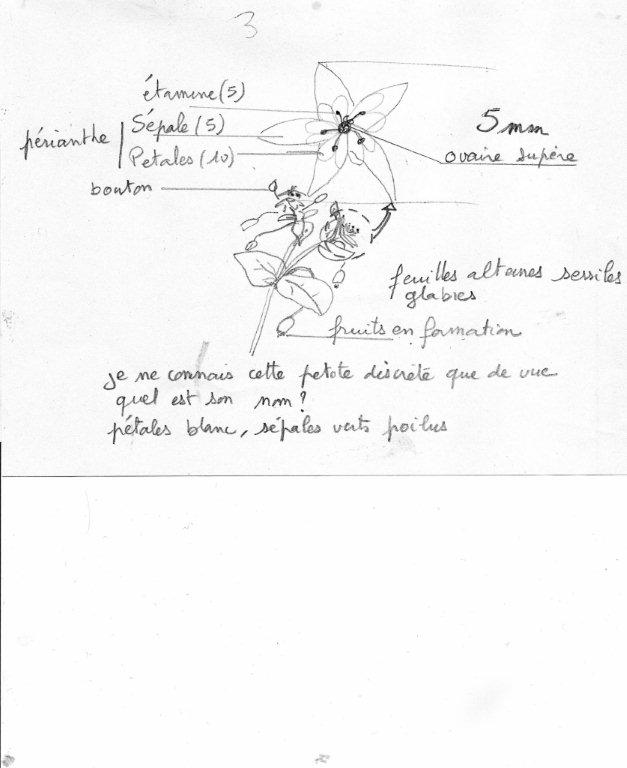 3
étamine (5)
Sépale (5)
périanthe
Petales (10)
5 mm
ovaire supère
bouton
feuilles alternes sessiles
glabres
fruits en formation
je ne connais cette petite discrète que de vue
quel est son nom ?
pétales blanc, sépales verts poilus